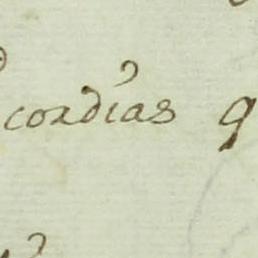 cordias q